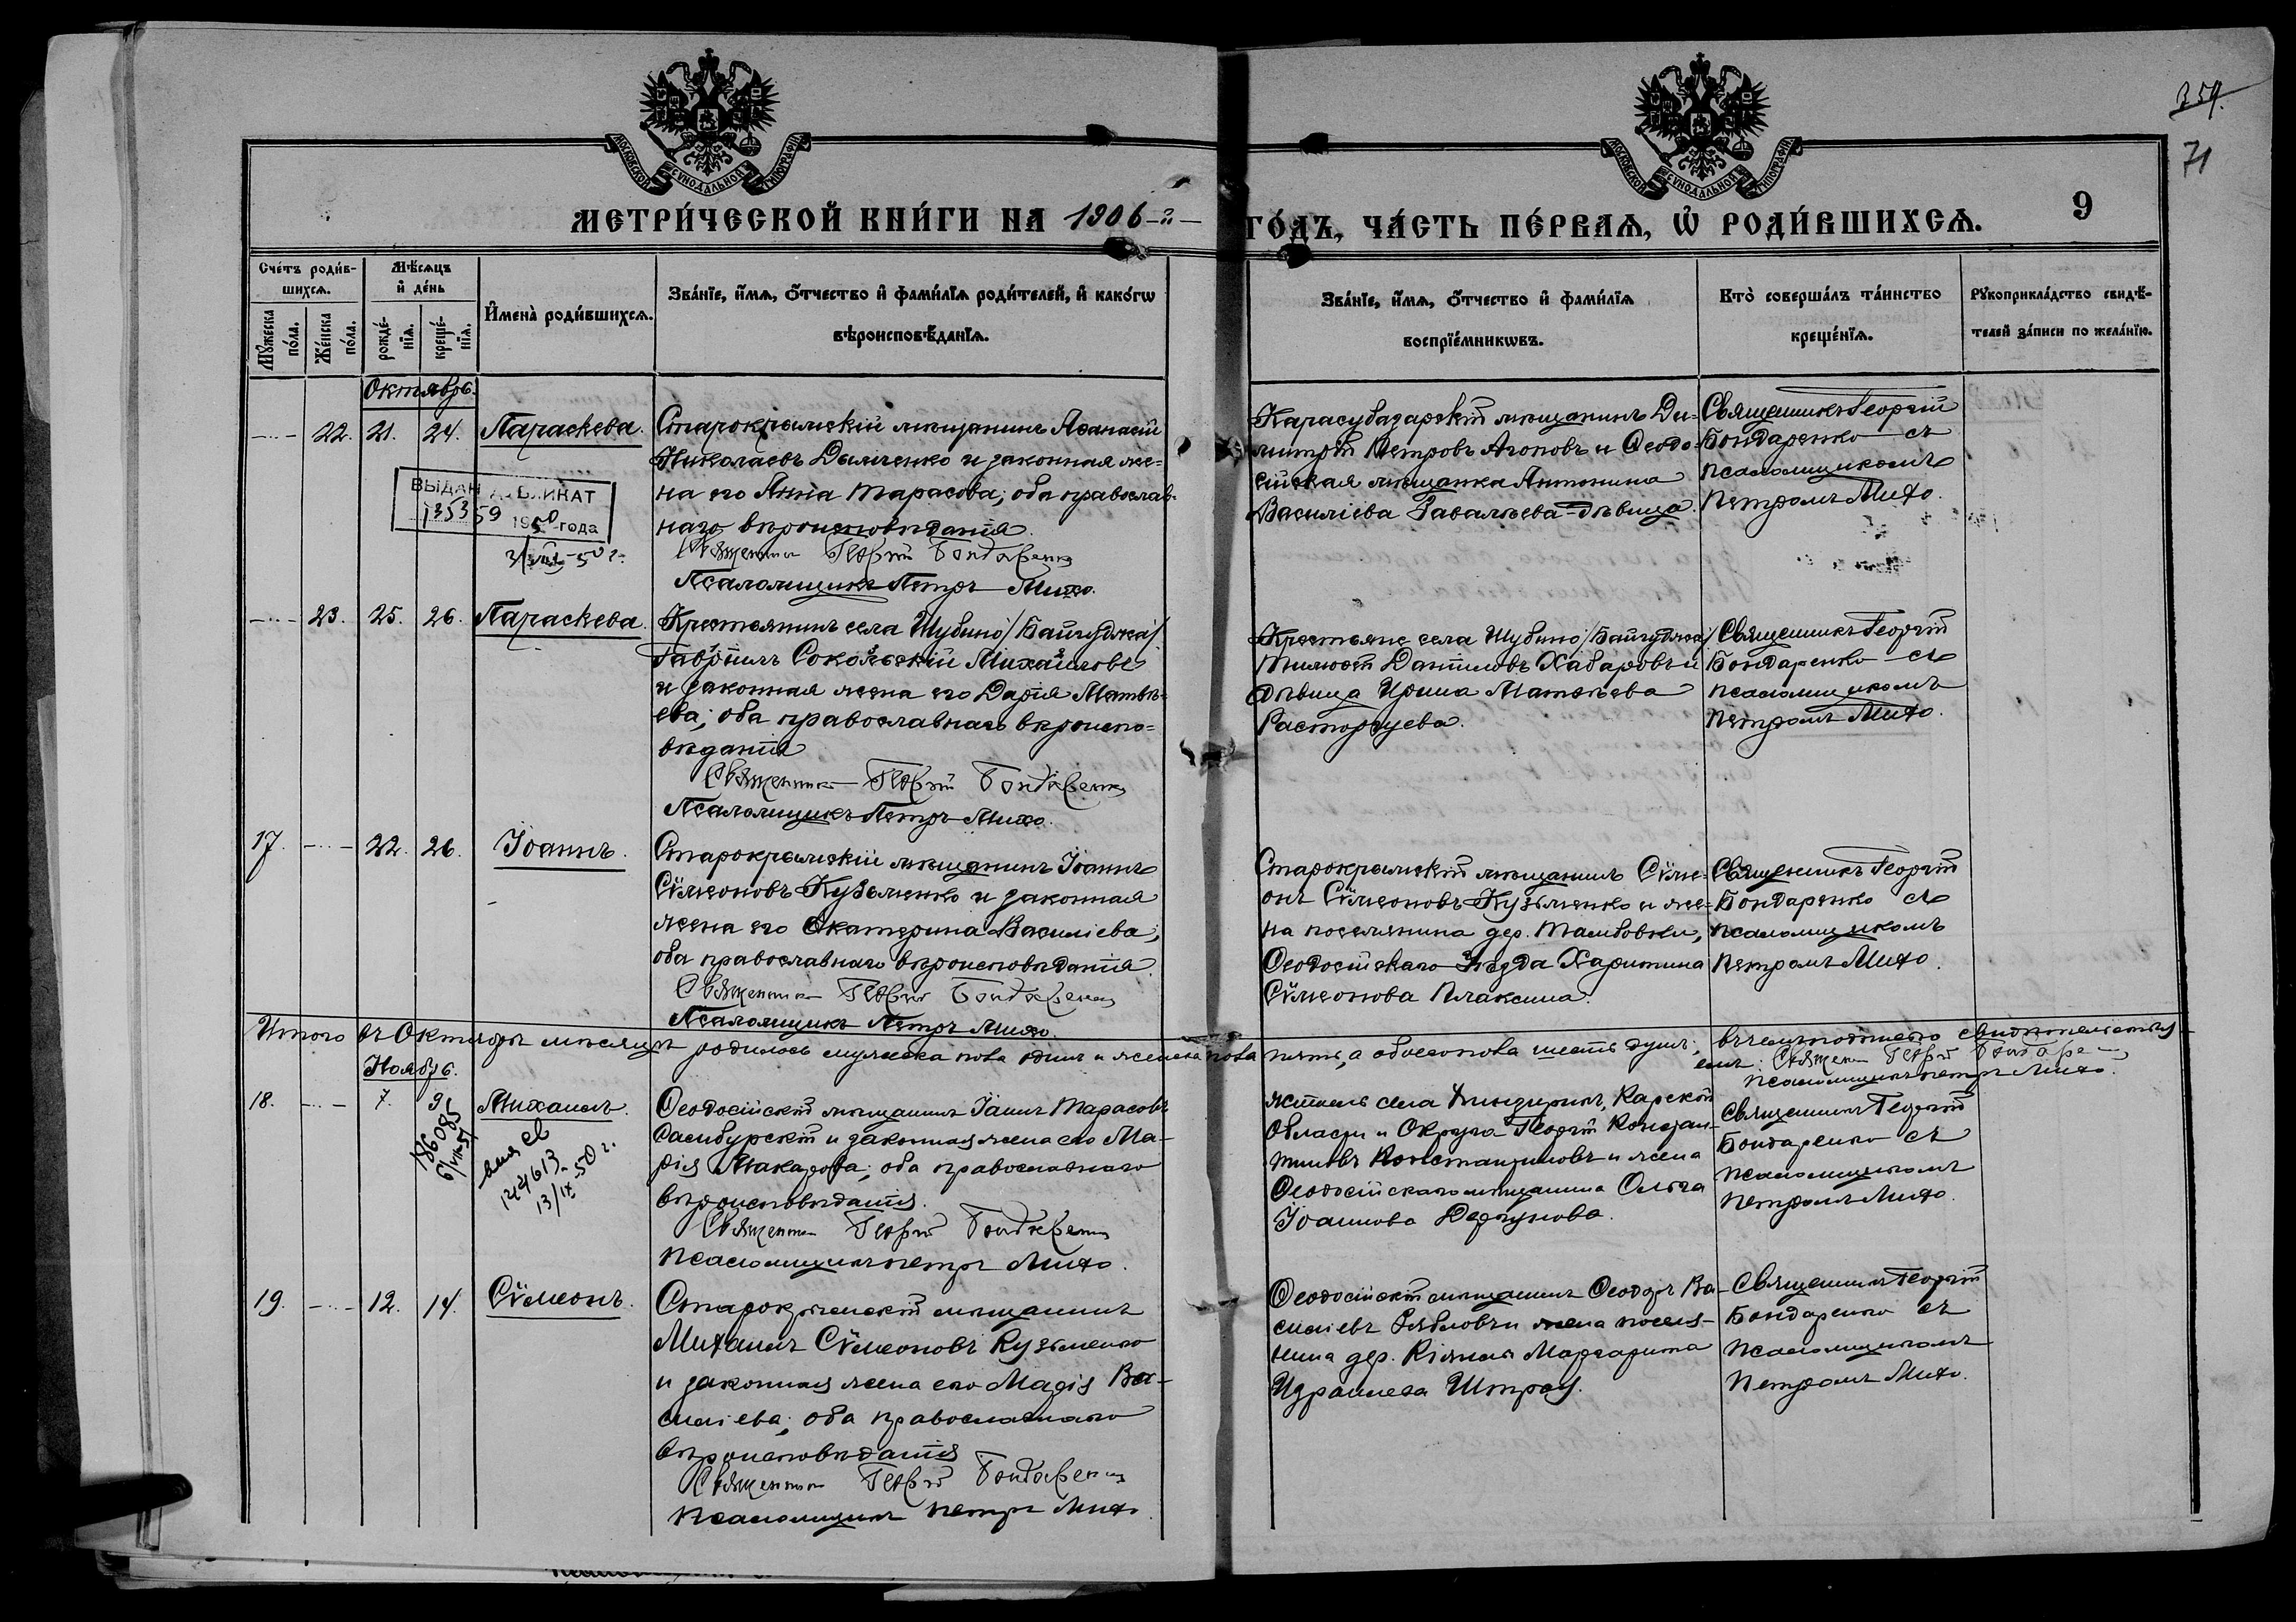 359.
71
МОСКОВСКОЙ СѴНОДАЛЬНОЙ ТИПОГРАФІИ
МОСКОВСКОЙ СѴНОДАЛЬНОЙ ТИПОГРАФІИ
МЕТРИ́ЧЕСКОЙ КНИ́ГИ НА 1906-й
ГО́ДЪ, ЧА́СТЬ ПЕ́РВАѦ, Ѡ҆ РОДИ́ВШИХСѦ.
9
Сче́тъ роди́в-
шихсѧ.
Мꙋ́жеска по́ла.
Же́нска по́ла.
Мѣ́сѧцъ
и҆ де́нь
рожде́-
нїѧ.
креще́-
нїѧ.
И҆мена̀ роди́вшихсѧ.
Зва́нїе, и҆́мѧ, ѻ҆́тчество и҆ фами́лїѧ роди́телей, и҆ како́гѡ
вѣроисповѣ́данїѧ.
Зва́нїе, и҆́мѧ, ѻ҆́тчество и҆ фами́лїѧ
воспрїе́мникѡвъ.
Кто̀ соверша́лъ та́инство
креще́нїѧ.
Рꙋкоприкла́дство свидѣ́-
телей за́писи по жела́нїю.
Октябрь.
22. 21. 24. Параскева.
Старокрымскій мѣщанинъ Аѳанасій
Николаевъ Дымченко и законная же-
на его Анна Тарасова; оба православ-
наго вѣроисповѣданія.
Священникъ Георгій Бондаренко
Псаломщикъ Петръ Михо.
Карасубазарскій мѣщанинъ Ди-
митрій Петровъ Агоповъ и Ѳеодо-
сійская мѣщанка Антонина
Василіева Гавалѣева - дѣвица.
Священникъ Георгій
Бондаренко съ
псаломщикомъ
Петромъ Михо.
ВЫДАН ДУБЛИКАТ
135359 1950 года
3/VIII-50 г.
23. 25. 26. Параскева.
Крестьянинъ села Шубино /Байгуджа/
Гавріилъ Соколовскій Михайловъ
и законная жена его Дарія Матвѣ-
ева; оба православнаго вѣроиспо-
вѣданія
Священникъ Георгій Бондаренко
Псаломщикъ Петръ Михо.
Крестьяне села Шубино /Байгуджа/
Данііловъ Хабаровъ и
дѣвица Ирина Матвѣева
Расторгуева.
Священникъ Георгій
Бондаренко съ
псаломщикомъ
Петромъ Михо.
17. 22. 26. Іоаннъ.
Старокрымскій мѣщанинъ Іоаннъ
Сѷмеоновъ Кузьменко и законная
жена его Екатерина Василіева;
оба православнаго вѣроисповѣданія.
Священникъ Георгій Бондаренко
Псаломщикъ Петръ Михо.
Старокрымскій мѣщанинъ Сѷме-
онъ Сѷмеоновъ Кузьменко и же-
на поселянина дер. Тамбовки,
Ѳеодосійскаго уѣзда Харитина
Сѷмеонова Плаксина.
Священникъ Георгій
Бондаренко съ
псаломщикомъ
Петромъ Михо.
Итого въ Октябрѣ мѣсяцѣ родилось мужеска пола одинъ и женска пола пять, а обоего пола шесть душъ;
Священникъ Георгій Бондаренко
псаломщикъ Петръ Михо.
Ноябрь.
18. 7. 9. Михаилъ.
186085
6/VII-51
124613
13/IX-50 г.
Ѳеодосійскій мѣщанинъ Іоаннъ Тарасовъ
Самбурскій и законная жена его Ма-
рія Макарова; оба православнаго
вѣроисповѣданія.
Священникъ Георгій Бондаренко
псаломщикъ Петръ Михо.
житель села Карской
Области и Округа Георгій Констан-
тиновъ Константиновъ и жена
Ѳеодосійскаго мѣщанина Ольга
Іоаннова Дергунова.
Священникъ Георгій
Бондаренко съ
псаломщикомъ
Петромъ Михо.
19. 12. 14. Сѷмеонъ.
Старокрымскій мѣщанинъ
Михаилъ Сѷмеоновъ Кузьменко
и законная жена его Марія Ва-
силіева; оба православнаго
вѣроисповѣданія
Священникъ Георгій Бондаренко
псаломщикъ Петръ Михо
Ѳеодосійскій мѣщанинъ Ѳеодоръ Ва-
силіевъ Рябловъ и жена поселя-
нина дер. Маргарита
Израилева Штрау.
Священникъ Георгій
Бондаренко съ
псаломщикомъ
Петромъ Михо.